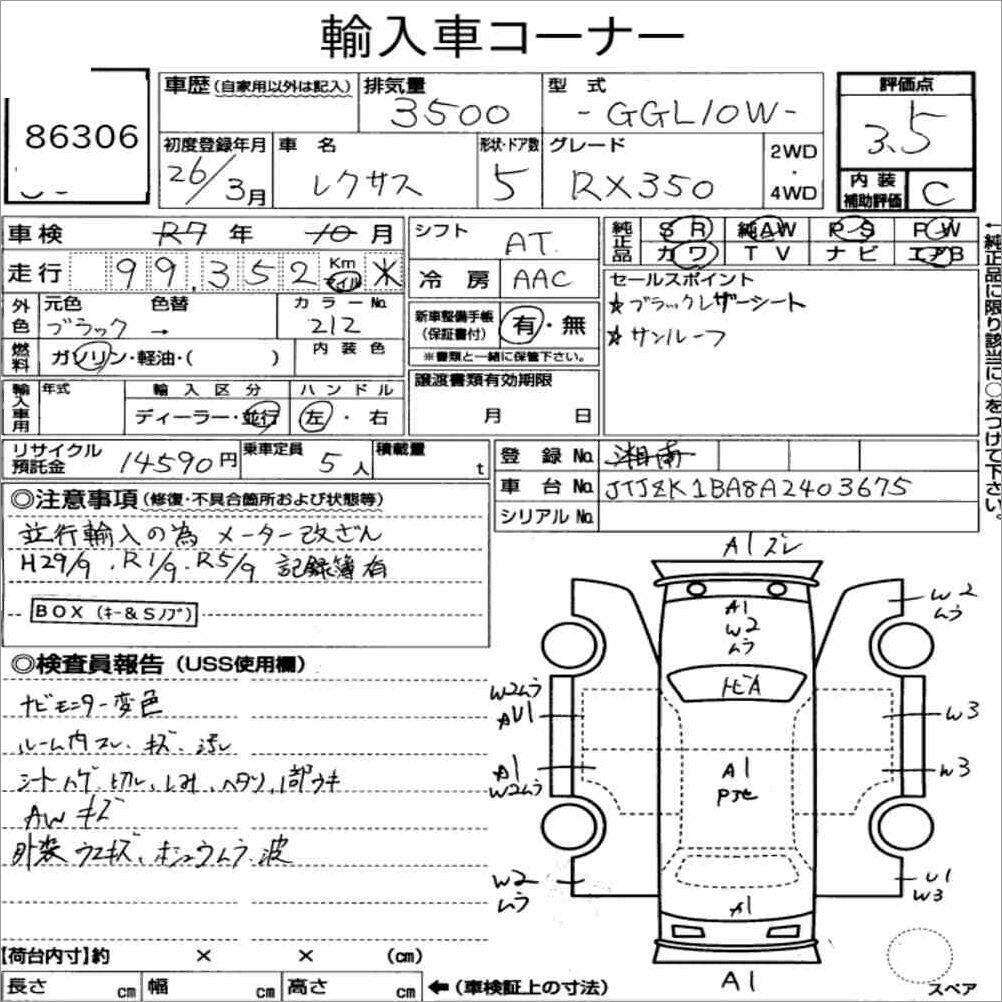 輸入車コーナー
86306
車歴(自家用以外は記入) 排気量 3500 型式 -GGL10W- 評価点 3.5
初度登録年月 26/3月 車名 レクサス 形状・ドア数 5 グレード RX350 2WD・4WD
内装補助評価 C
車検 R7年 10月 シフト AT 純正品 SR 純AW PS PW
カワ TV ナビ エアB
走行 99,352 Km マイル ※ 冷房 AAC セールスポイント
★ブラックレザーシート
★サンルーフ
外色 元色 ブラック 色替 → カラーNo. 212
新車整備手帳(保証書付) 有・無
※書類と一緒に保管下さい。
燃料 ガソリン・軽油・( ) 内装色
譲渡書類有効期限
月 日
輸入車用 年式 輸入区分 ハンドル
ディーラー・並行 左・右
←純正品に限り該当に○をつけて下さい。
リサイクル預託金 14590円 乗車定員 5人 積載量 t
登録No. 湘南
車台No. JTJZK1BA8A2403675
シリアルNo.
◎注意事項(修復・不具合箇所および状態等)
並行輸入の為 メーター改ざん
H29/9 . R1/9 . R5/9 記録簿有
BOX (キー&Sノブ)
◎検査員報告(USS使用欄)
ナビモニター変色
ルーム内スレ・キズ・汚レ
シートハゲ、切レ、しみ、ヘタリ、1部ウキ
AWキズ
外装 ウスキズ、ホシュウムラ、波
A1ズレ
A1
W2
ムラ
W2
ムラ
トビA
W2ムラ
AU1
W3
A1
W2ムラ
A1
W3
W2
ムラ
U1
W3
A1
A1
スペア
【荷台内寸】約 × × (cm)
長さ cm 幅 cm 高さ cm ←(車検証上の寸法)